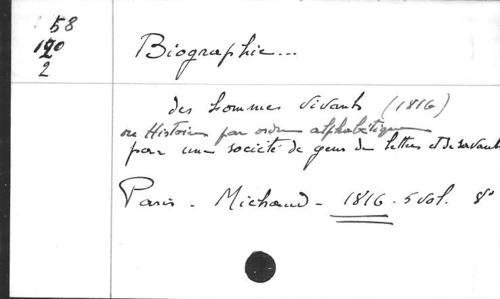 58
120
2
Biographie...
des hommes vivants (1816)
ou Histoire par ordre alphabétique
par une société de gens de lettres et de savants
Paris - Michaud - 1816 - 5 vol. 8°